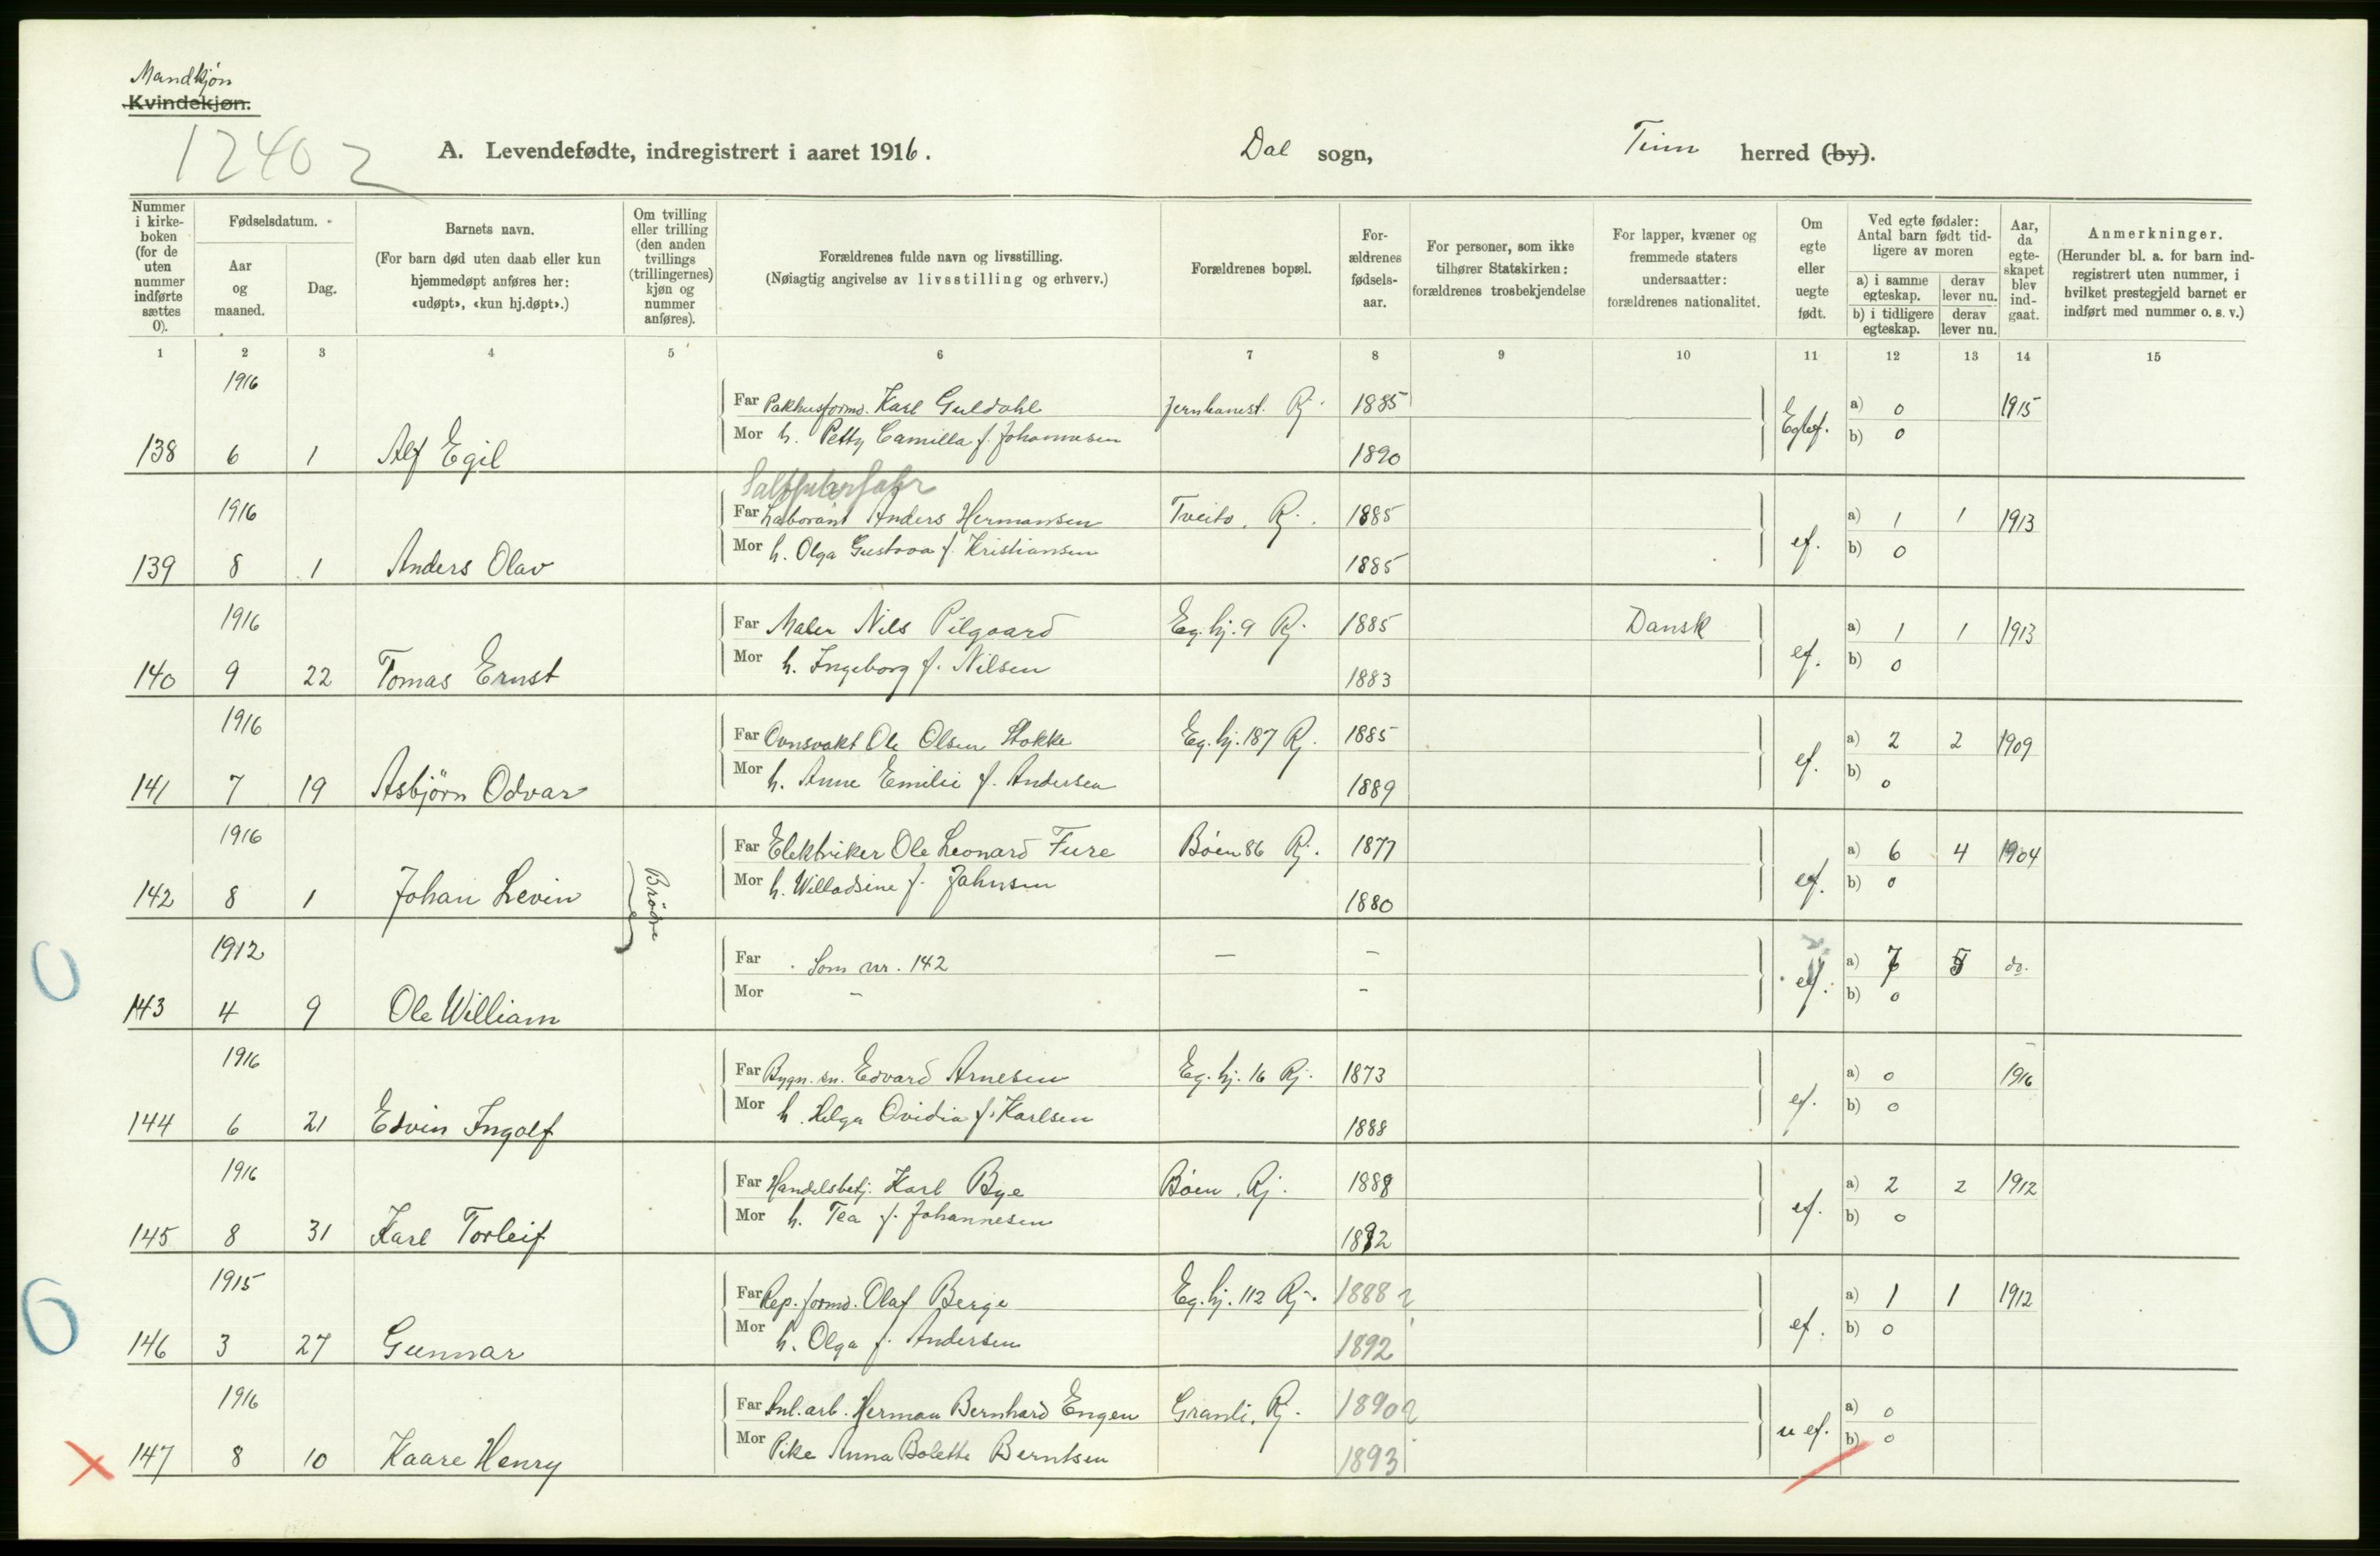 Mandkjøn
Kvindekjøn.
12402
A. Levendefødte, indregistrert i aaret 1916. Dal sogn, Tinn herred (by).
Nummer i kirke-boken (for de uten nummer indførte sættes 0).
Fødselsdatum.
Aar og maaned.
Dag.
Barnets navn.
(For barn død uten daab eller kun hjemmedøpt anføres her: «udøpt», «kun hj.døpt».)
Om tvilling eller trilling (den anden tvillings (trillingernes) kjøn og nummer anføres).
Forældrenes fulde navn og livsstilling.
(Nøiagtig angivelse av livsstilling og erhverv.)
Forældrenes bopæl.
For-ældrenes fødsels-aar.
For personer, som ikke tilhører Statskirken: forældrenes trosbekjendelse
For lapper, kvæner og fremmede staters undersaatter: forældrenes nationalitet.
Om egte eller uegte født.
Ved egte fødsler: Antal barn født tid-ligere av moren
a) i samme egteskap.
derav lever nu.
b) i tidligere egteskap.
derav lever nu.
Aar, da egte-skapet blev ind-gaat.
Anmerkninger.
(Herunder bl. a. for barn ind-registrert uten nummer, i hvilket prestegjeld barnet er indført med nummer o. s. v.)
1 2 3 4 5 6 7 8 9 10 11 12 13 14 15
1916
Far Pakhusformd. Karl Guldahl Jernbanest. Rj. 1885 a) 0 1915
Mor h. Petty Camilla f. Johannesen Egtef. b) 0
138 6 1 Alf Egil 1890
1916
Far Laborant Anders Hermansen Tveito. Rj. 1885 a) 1 1 1913
Mor h. Olga Gustava f. Kristiansen ef. b) 0
139 8 1 Anders Olav 1885
1916
Far Maler Nils Pilgaard Eg. hj. 9 Rj. 1885 Dansk a) 1 1 1913
Mor h. Ingeborg f. Nilsen ef. b) 0
140 9 22 Tomas Ernst 1883
1916
Far Ovnsvakt Ole Olsen Stokke Eg. hj. 187 Rj. 1885 a) 2 2 1909
Mor h. Anne Emilie f. Andersen ef. b) 0
141 7 19 Asbjörn Odvar 1889
1916
Far Elektriker Ole Leonard Fure Bøen 86 Rj. 1877 a) 6 4 1904
Mor h. Willadsine f. Jahnsen ef. b) 0
142 8 1 Johan Levin Brödre 1880
1912
Far Som nr. 142 — — a) 7 5 do.
Mor – – ef. b) 0
143 4 9 Ole William
1916
Far Bygn. sn. Edvard Arnesen Eg. hj. 16 Rj. 1873 a) 0 1916
Mor h. Helga Ovidia f. Karlsen ef. b) 0
144 6 21 Edvin Ingolf 1888
1916
Far Handelsbetj. Karl Bye Bøen. Rj. 1888 a) 2 2 1912
Mor h. Tea f. Johannesen ef. b) 0
145 8 31 Karl Torleif 1892
1915
Far Rep. formd. Olaf Berge Eg. hj. 112 Rj. 1888 ? a) 1 1 1912
Mor h. Olga f. Andersen ef. b) 0
146 3 27 Gunnar 1892
1916
Far Anl. arb. Herman Bernhard Engen Granli. Rj. 1890 ? a) 0
Mor Pike Anna Bolette Berntsen u ef. b) 0
147 8 10 Kaare Henry 1893